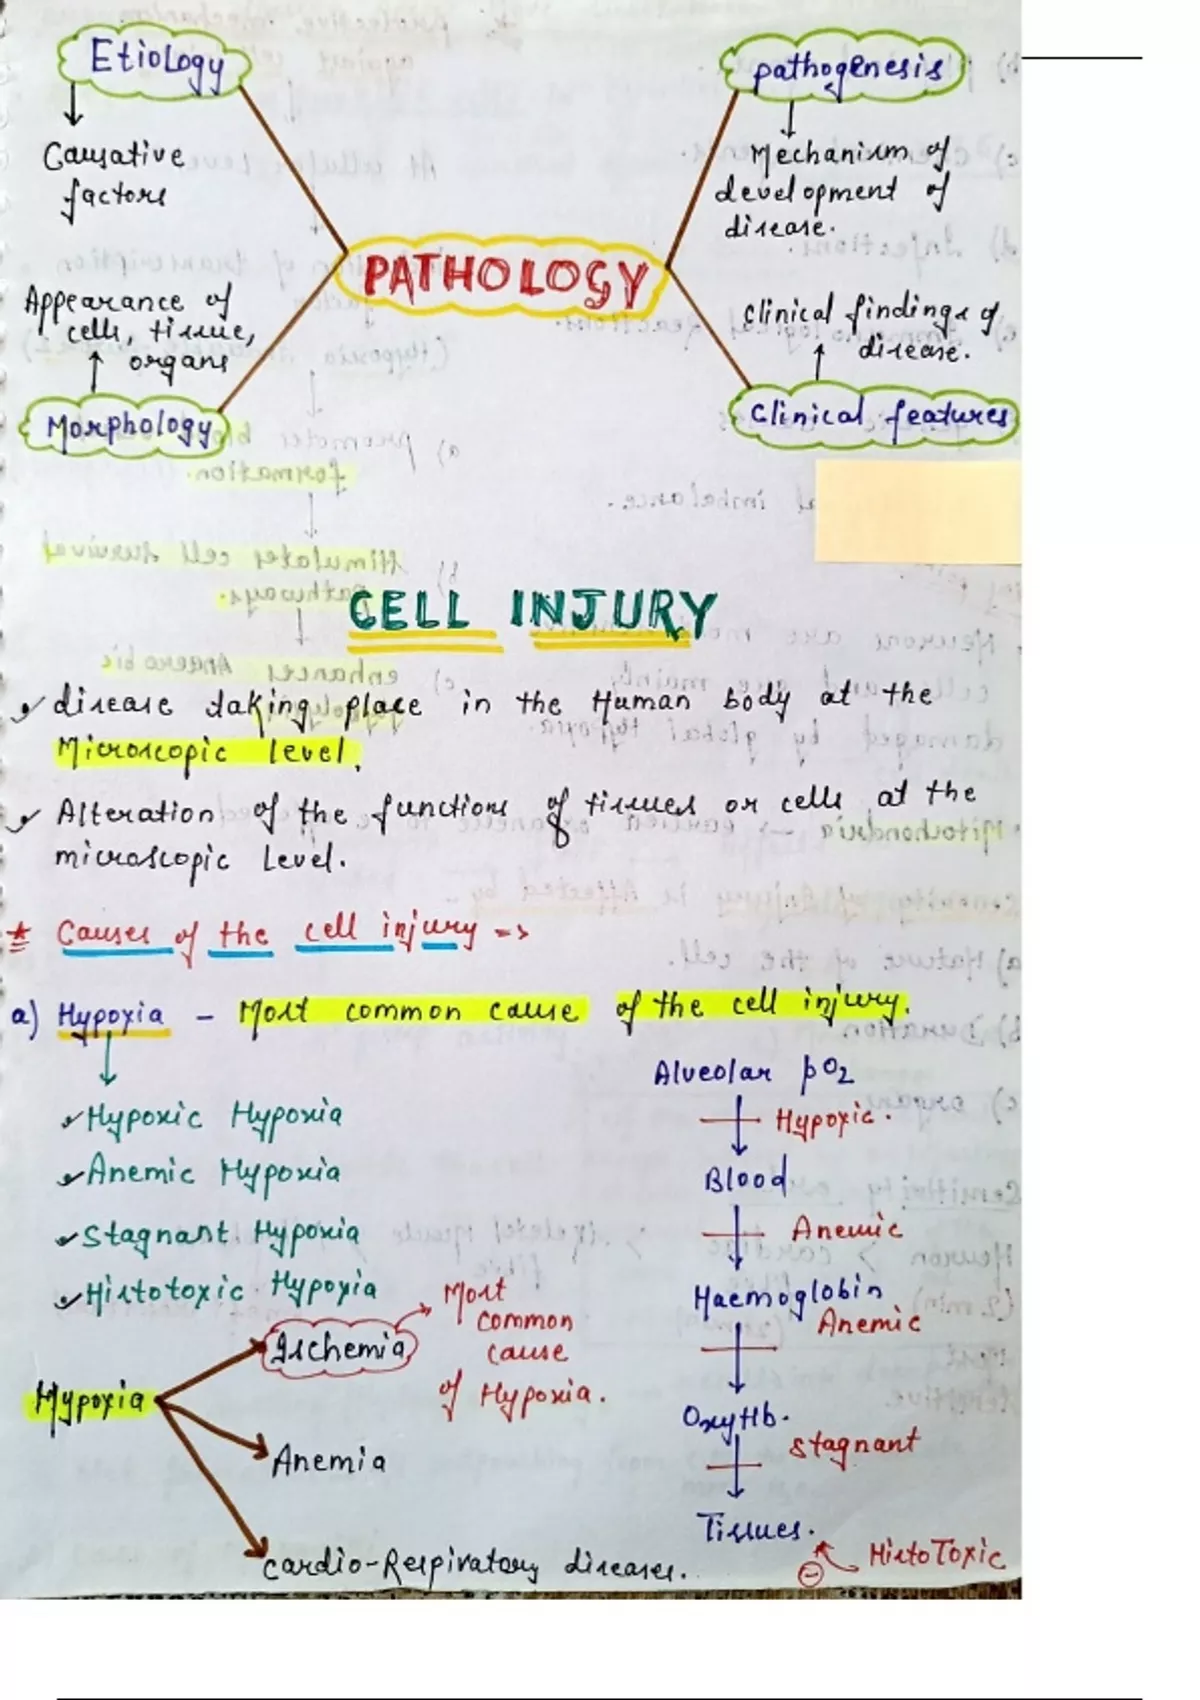 Etiology
Causative
factors
pathogenesis
Mechanism of
development of
disease.
PATHOLOGY
Appearance of
cells, tissue,
organs
Morphology
Clinical findings of
disease.
Clinical features
CELL INJURY
disease taking place in the Human body at the
Microscopic level.
Alteration of the functions of tissues or cells at the
microscopic Level.
* Causes of the cell injury =>
a) Hypoxia - Most common cause of the cell injury.
Hypoxic Hypoxia
Anemic Hypoxia
Stagnant Hypoxia
Histotoxic Hypoxia
Hypoxia
Ischemia
Most
common
cause
of Hypoxia.
Anemia
Cardio-Respiratory diseases.
Alveolar pO2
Hypoxic.
Blood
Anemic
Haemoglobin
Anemic
OxyHb.
Stagnant
Tissues.
HistoToxic